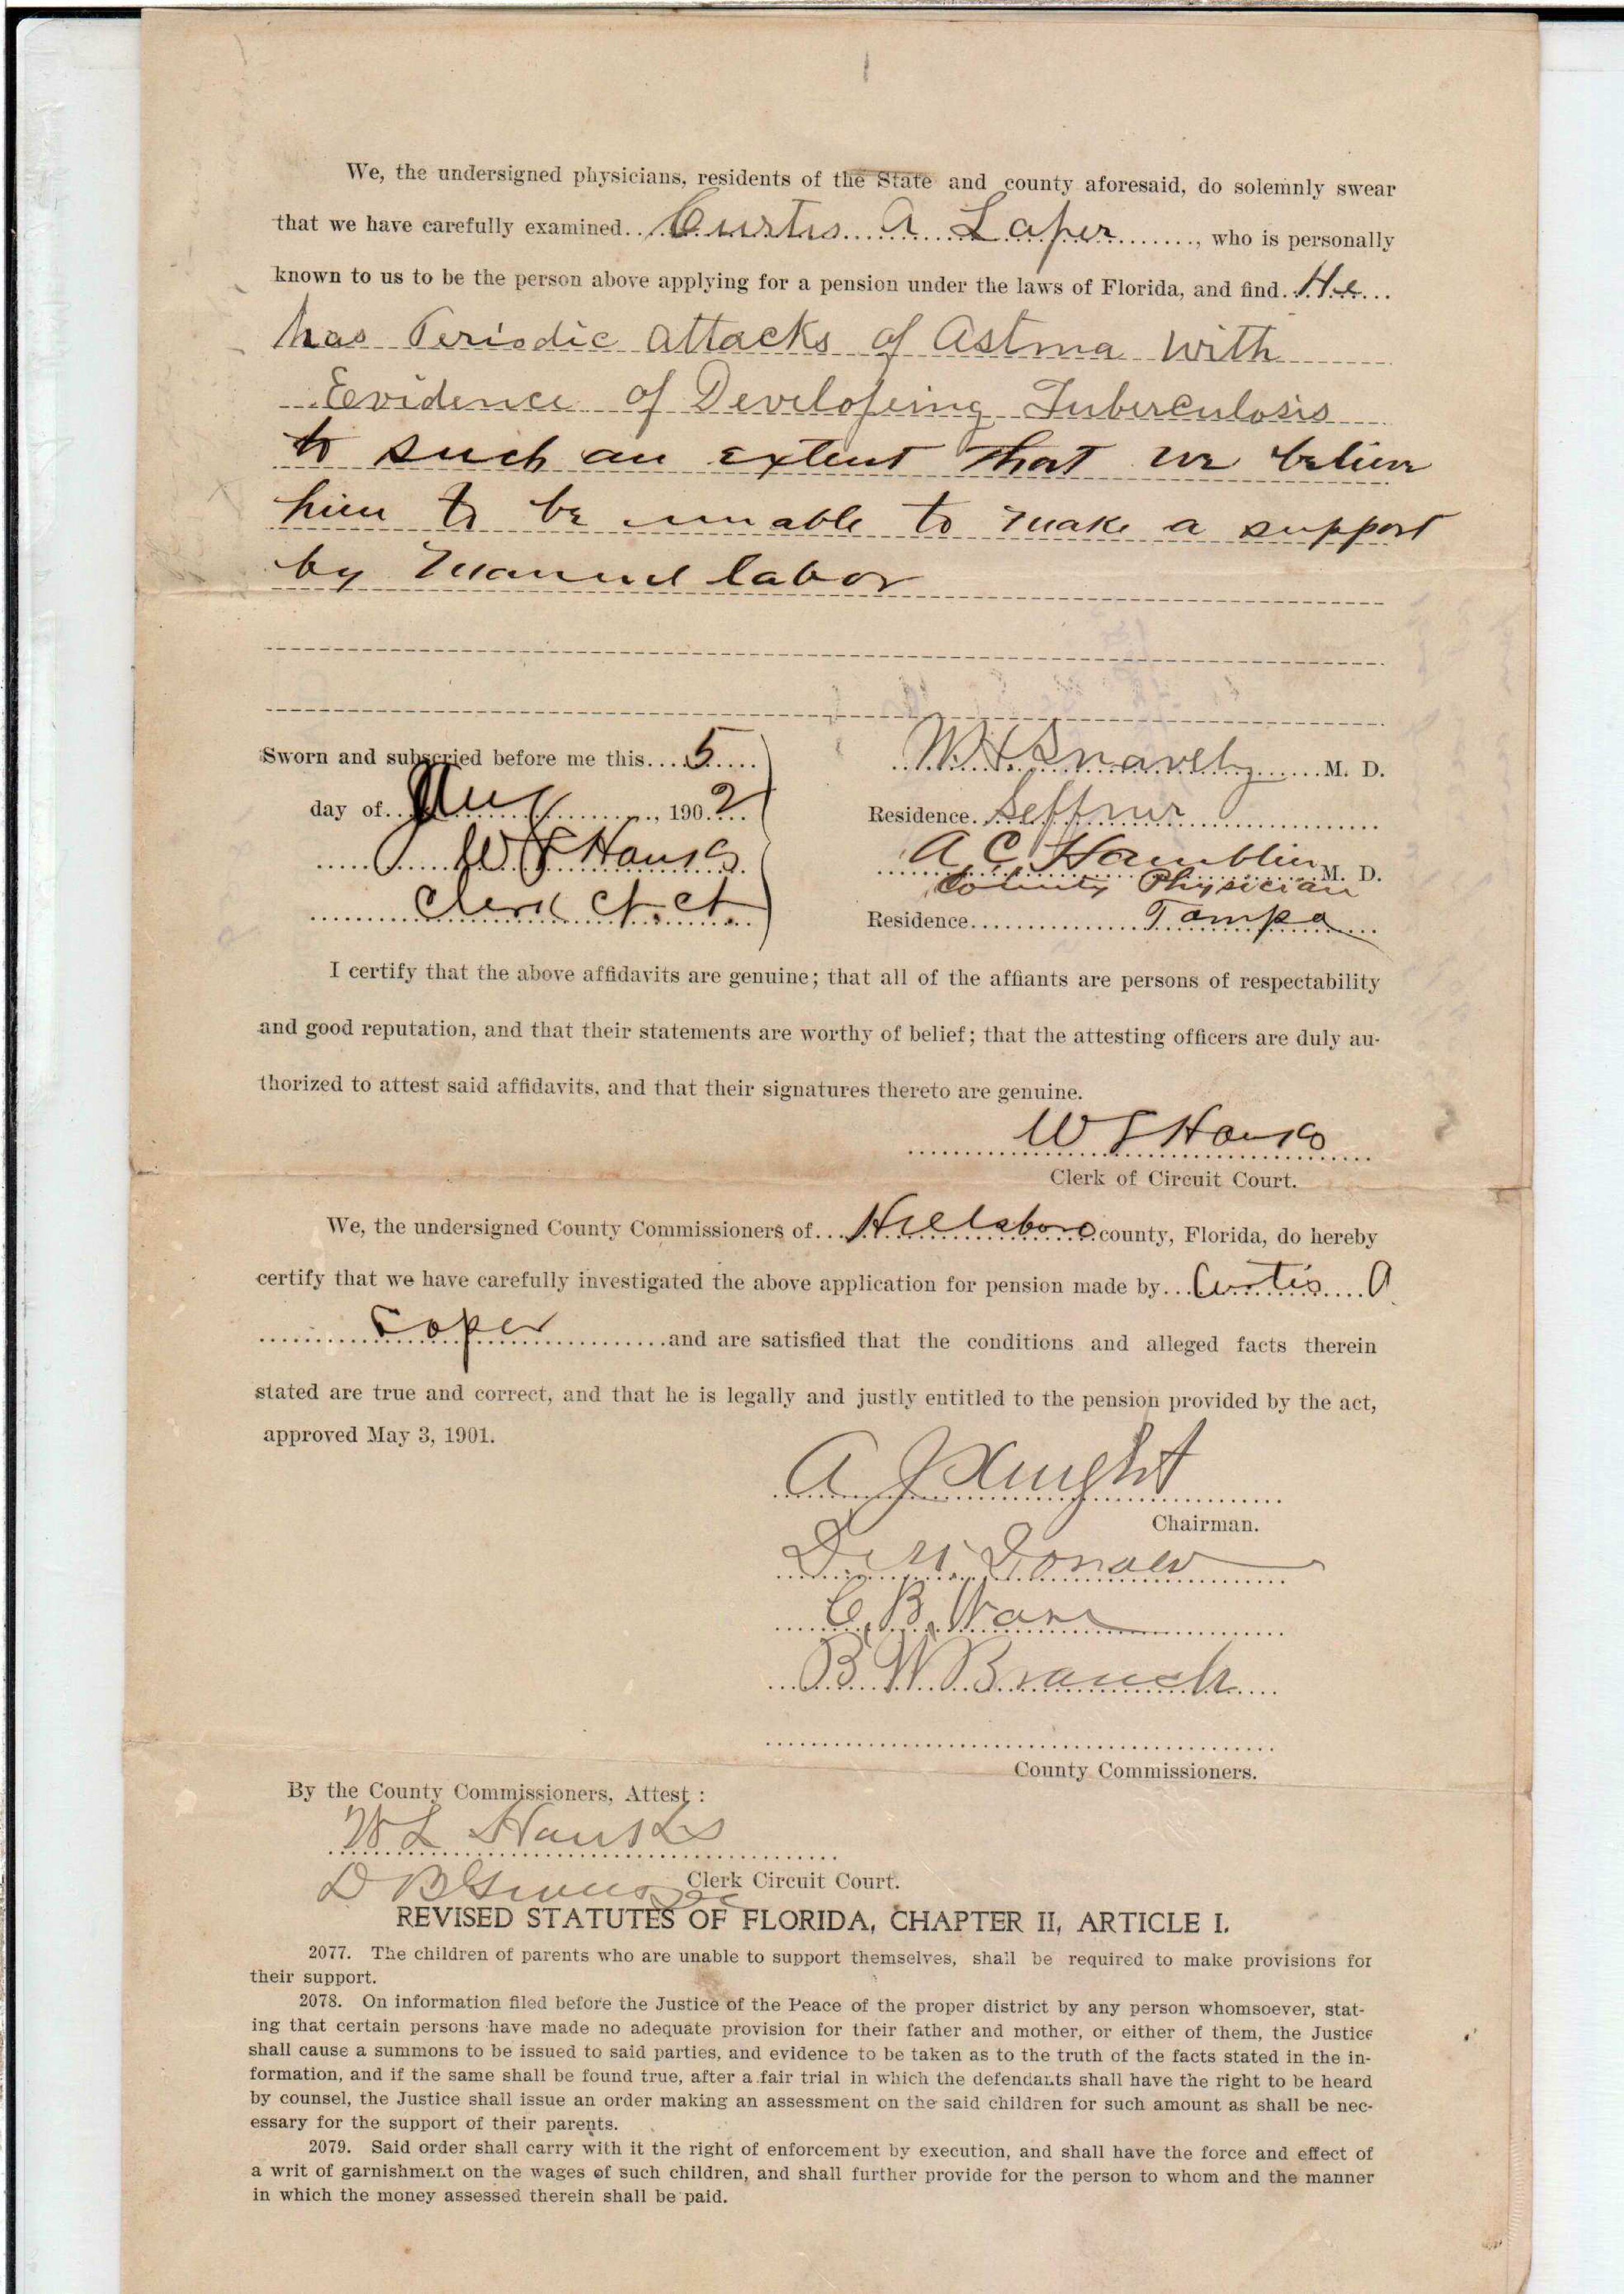 We, the undersigned physicians, residents of the State and county aforesaid, do solemnly swear
that we have carefully examined Curtis A Laper, who is personally
known to us to be the person above applying for a pension under the laws of Florida, and find He
has Periodic attacks of Astma with
Evidence of Develofeing Tuberculosis
to such an extent that we believe
him to be unable to make a support
by manuel labor
Sworn and subscried before me this 5
day of 1902
W Hanks
Clerk Ct. Ct.
W H Snavely M. D.
Residence Seffner
A C Hamblin M. D.
County Physician
Residence Tampa
I certify that the above affidavits are genuine; that all of the affiants are persons of respectability
and good reputation, and that their statements are worthy of belief; that the attesting officers are duly au-
thorized to attest said affidavits, and that their signatures thereto are genuine.
W L Hanks
Clerk of Circuit Court.
We, the undersigned County Commissioners of Hillsboro county, Florida, do hereby
certify that we have carefully investigated the above application for pension made by Curtis A
and are satisfied that the conditions and alleged facts therein
stated are true and correct, and that he is legally and justly entitled to the pension provided by the act,
approved May 3, 1901.
A J Knight
Chairman.
D. M. Donald
C. B. Ware
B. W. Branch
County Commissioners.
By the County Commissioners, Attest:
W L Hanks
Clerk Circuit Court.
D B Givens DC
REVISED STATUTES OF FLORIDA, CHAPTER II, ARTICLE I.
2077. The children of parents who are unable to support themselves, shall be required to make provisions for
their support.
2078. On information filed before the Justice of the Peace of the proper district by any person whomsoever, stat-
ing that certain persons have made no adequate provision for their father and mother, or either of them, the Justice
shall cause a summons to be issued to said parties, and evidence to be taken as to the truth of the facts stated in the in-
formation, and if the same shall be found true, after a fair trial in which the defendants shall have the right to be heard
by counsel, the Justice shall issue an order making an assessment on the said children for such amount as shall be nec-
essary for the support of their parents.
2079. Said order shall carry with it the right of enforcement by execution, and shall have the force and effect of
a writ of garnishment on the wages of such children, and shall further provide for the person to whom and the manner
in which the money assessed therein shall be paid.